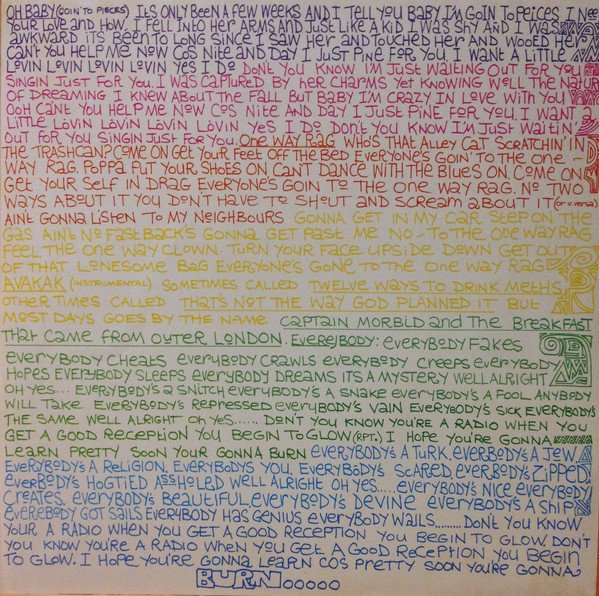 OH BABY (GOIN TO PIECES) ITS ONLY BEEN A FEW WEEKS AND I TELL YOU BABY I'M GOIN TO PEICES I NEED
YOUR LOVE AND HOW, I FELL INTO HER ARMS AND JUST LIKE A KID I WAS SHY AND I WAS
AWKWARD ITS BEEN TO LONG SINCE I SAW HER AND TOUCHED HER AND WOOED HER
CAN'T YOU HELP ME NOW COS NITE AND DAY I JUST PINE FOR YOU I WANT A LITTLE
LOVIN LOVIN LOVIN LOVIN YES I DO DON'T YOU KNOW I'M JUST WAITING OUT FOR YOU
SINGIN JUST FOR YOU. I WAS CAPTURED BY HER CHARMS YET KNOWING WELL THE NATURE
OF DREAMING I KNEW ABOUT THE FALL BUT BABY I'M CRAZY IN LOVE WITH YOU
OOH CAN'T YOU HELP ME NOW COS NITE AND DAY I JUST PINE FOR YOU, I WANT A
LITTLE LOVIN LOVIN LOVIN LOVIN YES I DO DON'T YOU KNOW I'M JUST WAITIN
OUT FOR YOU SINGIN JUST FOR YOU. ONE WAY RAG WHO'S THAT ALLEY CAT SCRATCHIN' IN
THE TRASHCAN? COME ON GET YOUR FEET OFF THE BED EVERYONE'S GOIN' TO THE ONE -
WAY RAG. POPPA PUT YOUR SHOES ON CAN'T DANCE WITH THE BLUES ON COME ON
GET YOUR SELF IN DRAG EVERYONE'S GOIN TO THE ONE WAY RAG. NO TWO
WAYS ABOUT IT YOU DON'T HAVE TO SHOUT AND SCREAM ABOUT IT (OR V. VERSA)
AINT GONNA LISTEN TO MY NEIGHBOURS GONNA GET IN MY CAR STEP ON THE
GAS AIN'T NO FASTBACK'S GONNA GET PAST ME NO - TO THE ONE WAY RAG
FEEL THE ONE WAY CLOWN. TURN YOUR FACE UPSIDE DOWN GET OUT
OF THAT LONESOME BAG EVERYONE'S GONE TO THE ONE WAY RAG
AVAKAK (INSTRUMENTAL) SOMETIMES CALLED TWELVE WAYS TO DRINK METHS,
OTHER TIMES CALLED THAT'S NOT THE WAY GOD PLANNED IT BUT
MOST DAYS GOES BY THE NAME CAPTAIN MORBID AND THE BREAKFAST
THAT CAME FROM OUTER LONDON. EVEREJBODY: EVERYBODY FAKES
EVERYBODY CHEATS EVERYBODY CRAWLS EVERYBODY CREEPS EVERYBODY
HOPES EVERYBODY SLEEPS EVERYBODY DREAMS ITS A MYSTERY WELL ALRIGHT
OH YES... EVERYBODY'S A SNITCH EVERYBODY'S A SNAKE EVERYBODY'S A FOOL ANYBODY
WILL TAKE EVERYBODY'S REPRESSED EVERYBODY'S VAIN EVERYBODY'S SICK EVERYBODY'S
THE SAME WELL ALRIGHT OH YES...... DON'T YOU KNOW YOU'RE A RADIO WHEN YOU
GET A GOOD RECEPTION YOU BEGIN TO GLOW (RPT.) I HOPE YOU'RE GONNA
LEARN PRETTY SOON YOUR GONNA BURN EVERYBODY'S A TURK, EVERBODY'S A JEW
EVERYBODY'S A RELIGION, EVERYBODYS YOU, EVERYBODY'S SCARED, EVERYBODY'S ZIPPED
EVERBODY'S HOGTIED ASSHOLED WELL ALRIGHT OH YES..... EVERYBODY'S NICE EVERYBODY
CREATES, EVERYBODY'S BEAUTIFUL, EVERYBODY'S DEVINE EVERYBODY'S A SHIP
EVEREBODY GOT SAILS EVERYBODY HAS GENIUS EVERYBODY WAILS......... DON'T YOU KNOW
YOUR A RADIO WHEN YOU GET A GOOD RECEPTION YOU BEGIN TO GLOW. DON'T
YOU KNOW YOU'RE A RADIO WHEN YOU GET A GOOD RECEPTION YOU BEGIN
TO GLOW. I HOPE YOU'RE GONNA LEARN COS PRETTY SOON YOU'RE GONNA
BURN OOOOO